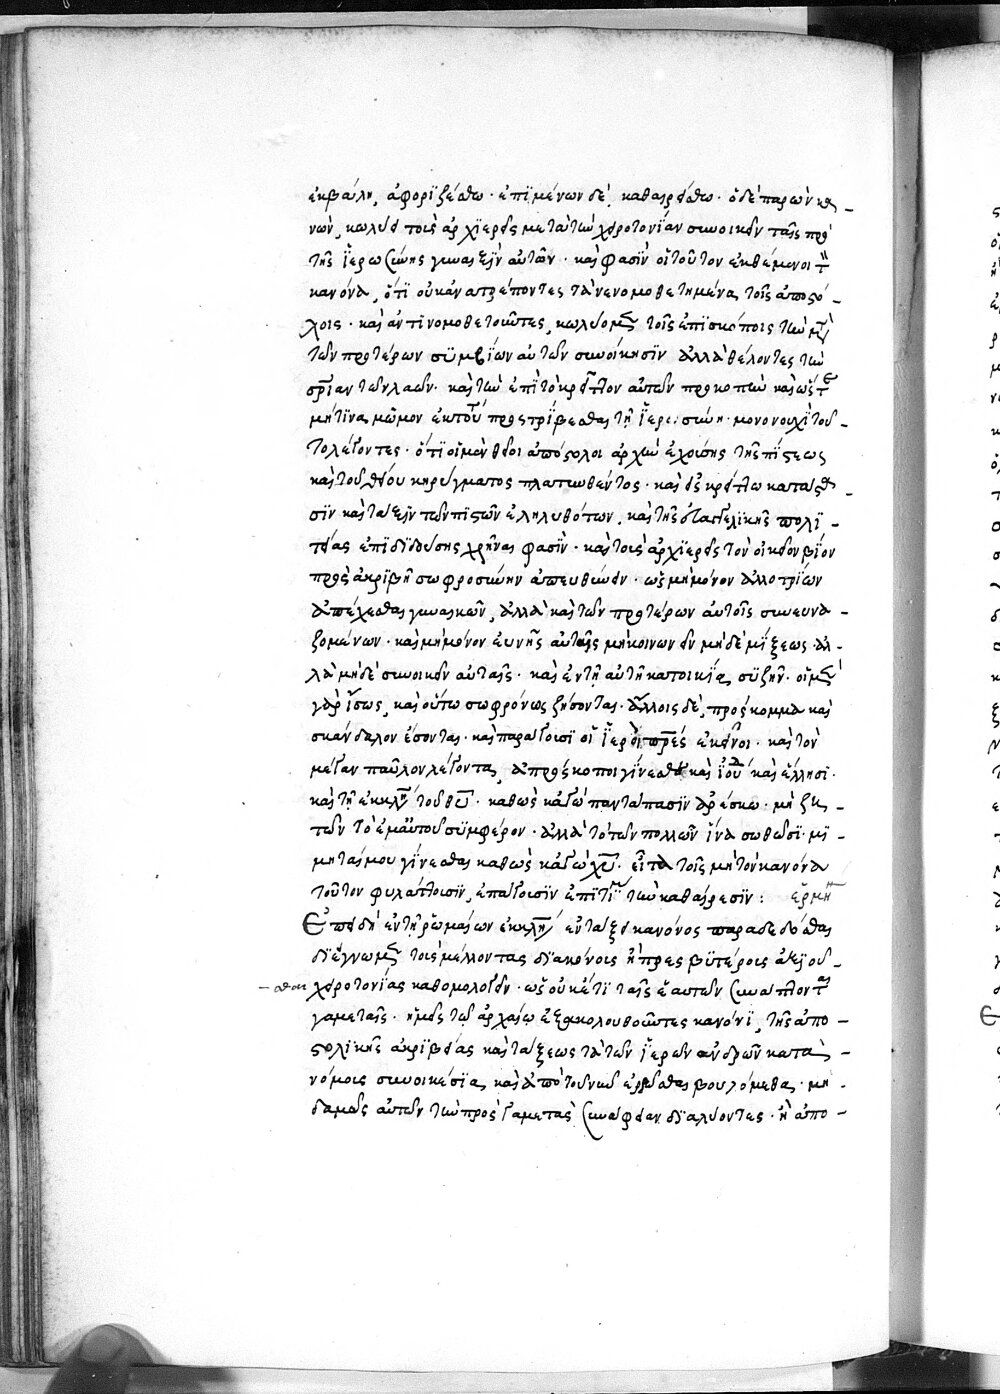 ἐκβάλη, ἀφοριζέσθω· ἐπιμένων δὲ, καθαιρείσθω· ὁ δὲ παρὼν κα
νὼν, κωλύει τοὺς ἀρχιερεῖς μετὰ τὴν χειροτονίαν συνοικεῖν ταῖς πρὸ
τῆς ἱερωσύνης γυναιξὶν αὐτῶν· καὶ φασὶν οἱ τοῦτον ἐκθέμενοι τ
κανόνα, ὅτι οὐκ ἀνατρέποντες τὰ νενομοθετημένα τοῖς ἀποστό
λοις· καὶ ἀντινομοθετοῦντες, κωλύομεν τοῖς ἐπισκόποις τὴν μετὰ
τῶν προτέρων συμβίων αὐτῶν συνοίκησιν ἀλλὰ θέλοντες τὴν
σρίαν τῶν λαῶν· καὶ τὴν ἐπὶ τὸ κρεῖττον αὐτῶν προκοπὴν καὶ ὥστε
μή τινα μῶμον ἐκ τού προστρίβεσθαι τῇ ἱερωσύνη· μονονουχὶ τοῦ
το λέγοντες· ὅτι οἱ μὲν θεῖοι ἀπόστολοι ἀρχὴν ἐχούσης τῆς πίστεως
καὶ τοῦ θείου κηρύγματος πλατυνθέντος· καὶ εἰς κρείττω κατάστα
σιν καὶ τάξιν τῶν πιστῶν ἐληλυθότων, καὶ τῆς εὐαγγελικῆς πολι
τείας ἐπιδιδούσης χρῆναι φασὶν· καὶ τοὺς ἀρχιερεῖς τὸν οἰκεῖον βίον
πρὸς ἀκριβῆ σωφροσύνην ἀπευθύνειν· ὡς μὴ μόνον ἀλλοτρίων
ἀπέχεσθαι γυναικῶν, ἀλλὰ καὶ τῶν προτέρων αὐτοῖς συνευνα
ζομένων· καὶ μὴ μόνον εὐνῆς αὐταῖς μὴ κοινωνεῖν μηδὲ μίξεως ἀλ
λὰ μηδὲ συνοικεῖν αὐταῖς· καὶ ἐν τῇ αὐτῆ κατοικία, συζῆν· οἱ μὲν
γὰρ ἴσως, καὶ οὕτω σωφρόνως ζήσονται· ἄλλοις δὲ, πρόσκομμα καὶ
σκάνδαλον ἔσονται· καὶ παράγουσι οἱ ἱεροὶ πρες ἐκεῖνοι· καὶ τὸν
μέγαν παῦλον λέγοντα, ἀπρόσκοποι γίνεσθε καὶ ἰου καὶ ἕλλησι·
καὶ τῇ ἐκκλη τοῦ θυ· καθὼς κἀγὼ πάντα πᾶσιν ἀρέσκω· μὴ ζη
τῶν τὸ ἐμαυτοῦ συμφέρον· ἀλλὰ τὸ τῶν πολλῶν ἵνα σωθῶσι· μι
μηταί μου γίνεσθαι καθὼς κἀγὼ χυ· εἶτα τοῖς μὴ τὸν κανόνα
τοῦτον φυλάττουσιν, ἐπάγουσιν ἐπιτί τὴν καθαίρεσιν: ἑρμη
Ἐπειδὴ ἐν τῇ ῥωμαίων ἐκκλη ἐν τάξει κανόνος παραδεδόσθαι
διέγνωμεν τοὺς μέλλοντας διακόνοις ἢ πρεσβυτέροις ἀξιοῦ
σθαι χειροτονίας καθομολογεῖν· ὡς οὐκέτι ταῖς ἑαυτῶν συνάπτονται
γαμεταῖς· ἡμεῖς τῷ ἀρχαίω ἐξακολουθοῦντες κανόνι, τῆς ἀπο
στολικῆς ἀκριβείας καὶ τάξεως τὰ τῶν ἱερῶν ἀνδρῶν κατὰ
νόμοις συνοικέσια, καὶ ἀπὸ τοῦ νῦν ἐρρῶσθαι βουλόμεθα· μη
δαμῶς αὐτῶν τὴν πρὸς γαμετὰς συνάφειαν διαλύοντες· ἢ ἀπο